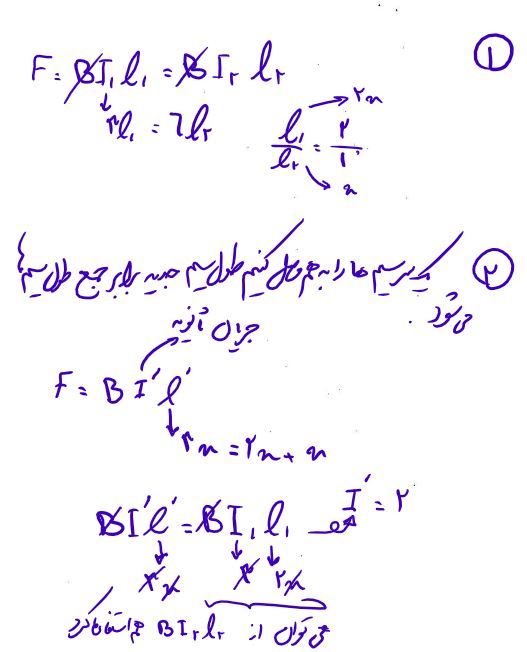 ①
F = BI₁l₁ = BI₂l₂
↓
۳l₁ = ۶l₂
l₁/l₂ = ۲/۱
→ ۲x
→ x
②
سیم ها را به هم وصل کنیم طول سیم جدید برابر جمع طول سیم
می شود.
جریان ثانویه
F = B I′ l′
↓
۳x = ۲x + x
BI′l′ = BI₁l₁ → I′ = ۲
۳x ۳ ۲x
می توان از BI₂l₂ هم استفاده کرد